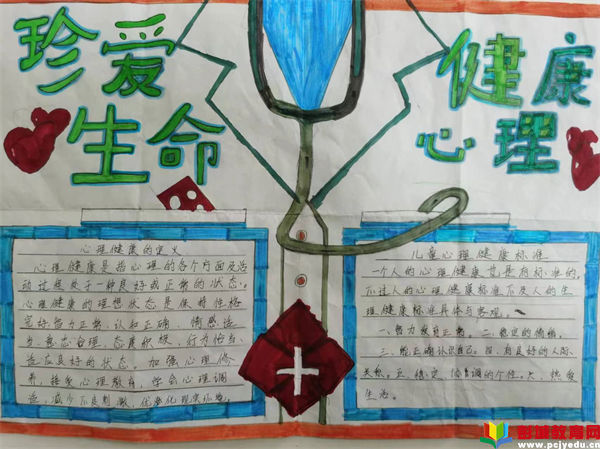 珍爱
生命
健康
心理
心理健康的定义
心理健康是指心理的各个方面及活
动过程处于一种良好或正常的状态。
心理健康的理想状态是保持性格
完好、智力正常、认知正确、情感适
当、意志合理、态度积极、行为恰当、
适应良好的状态。加强心理修
养，接受心理教育，学会心理调
适，减少不良刺激，优化现实环境。
儿童心理健康标准
一个人的心理健康
不过人的心理健康标准不及人的生
理健康标准具体与客观。
一、智力发育正常。二、稳定的情绪。
三、能正确认识自己。四、有良好的人际
关系。五、稳定、协调的个性。六、热爱
生活。
彭城教育网
www.pcjyedu.cn